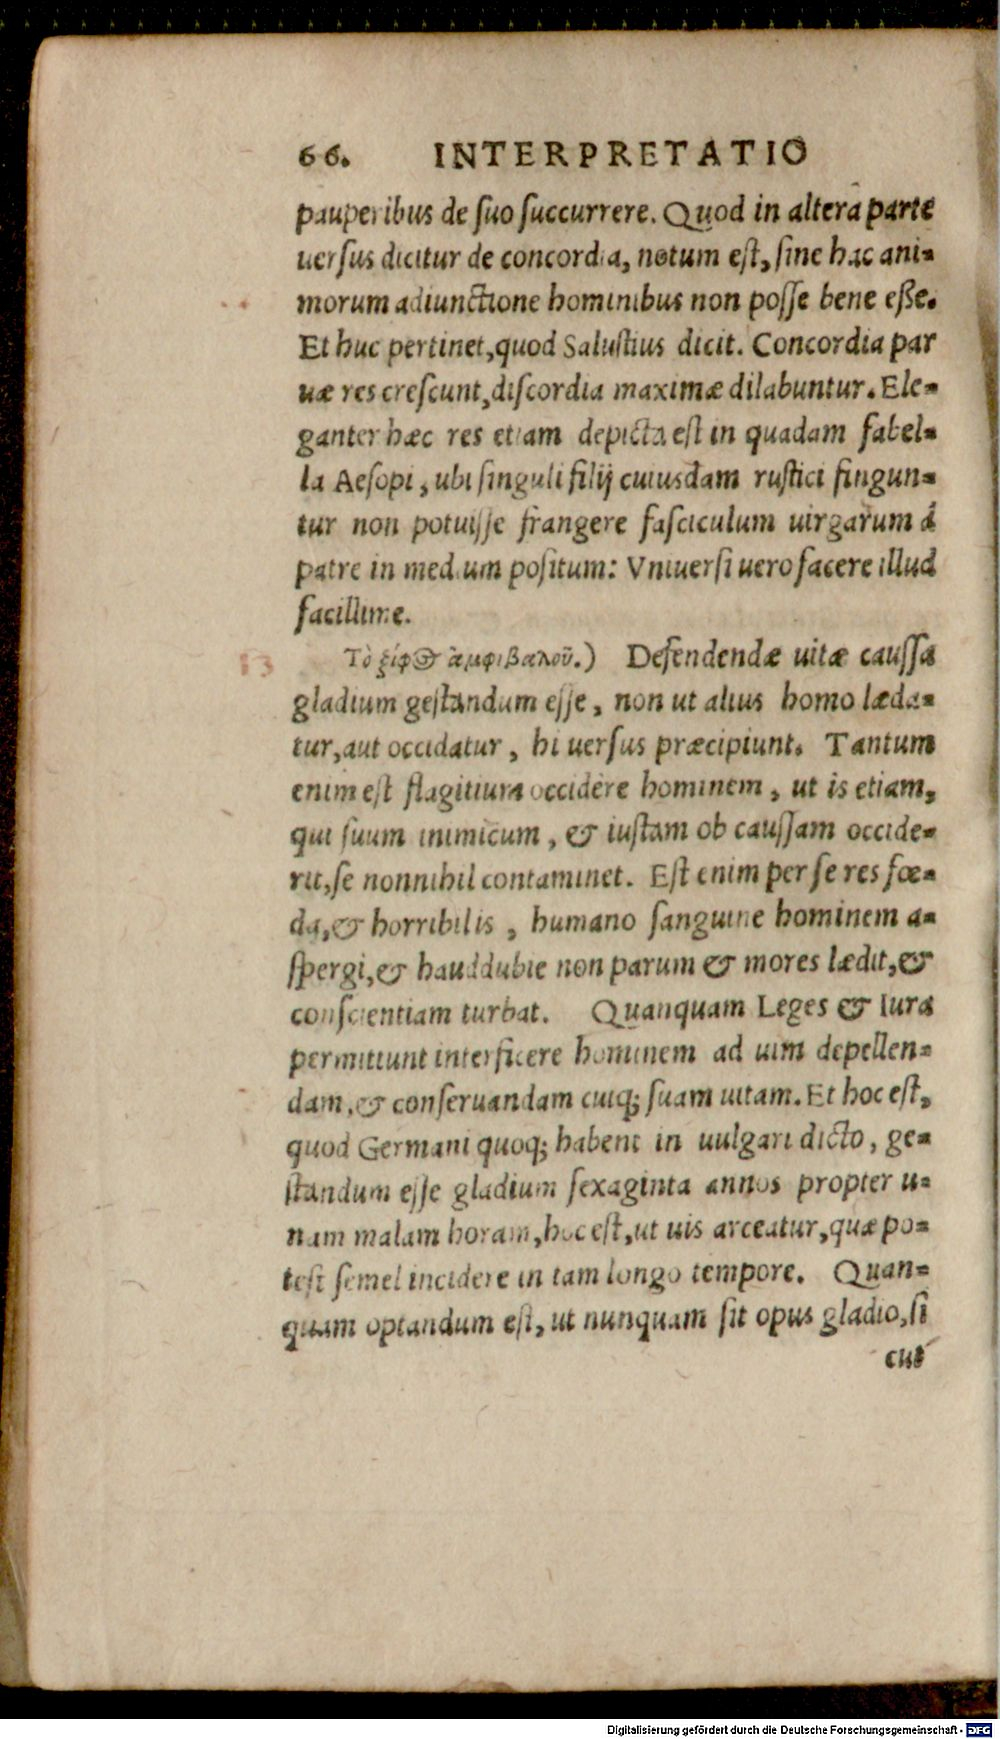 66. INTERPRETATIO
pauperibus de suo succurrere. Quod in altera parte
uersus dicitur de concordia, notum est, sine hac ani-
morum adiunctione hominibus non posse bene eße.
Et huc pertinet, quod Salustius dicit. Concordia par
uæ res crescunt, discordia maximæ dilabuntur. Ele-
ganter hæc res etiam depicta est in quadam fabel-
la Aesopi, ubi singuli filij cuiusdam rustici fingun-
tur non potuisse frangere fasciculum uirgarum á
patre in medium positum: Vniuersi uero facere illud
facillime.
Τὸ ξίφος ἀμφιβαλοῦ.) Defendendæ uitæ caussa
gladium gestandum esse, non ut alius homo læda-
tur, aut occidatur, hi uersus præcipiunt. Tantum
enim est flagitium occidere hominem, ut is etiam,
qui suum inimicum, & iustam ob caussam occide-
rit, se nonnihil contaminet. Est enim per se res fœ-
da, & horribilis, humano sanguine hominem a-
spergi, & hauddubie non parum & mores lædit, &
conscientiam turbat. Quanquam Leges & Iura
permittunt interficere hominem ad uim depellen-
dam, & conseruandam cuiq; suam uitam. Et hoc est,
quod Germani quoq; habent in uulgari dicto, ge-
standum esse gladium sexaginta annos propter u-
nam malam horam, hoc est, ut uis arceatur, quæ po-
test semel incidere in tam longo tempore. Quan-
quam optandum est, ut nunquam sit opus gladio, si
cut
Digitalisierung gefördert durch die Deutsche Forschungsgemeinschaft - DFG